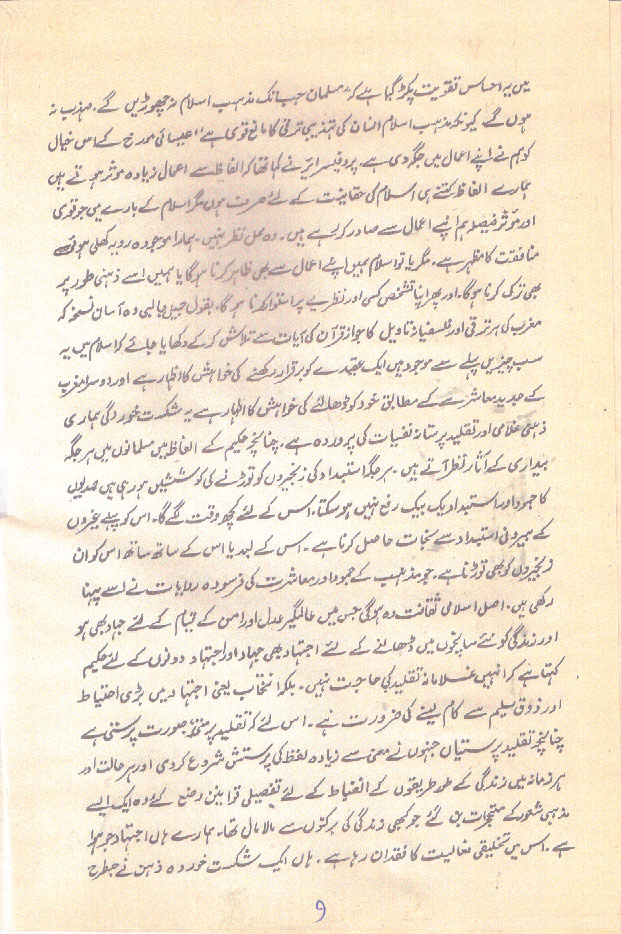 میں یہ احساس تقویت پکڑ گیا ہے کہ "مسلمان جب تک مذہب اسلام نہ چھوڑیں گے۔ مہذب نہ
ہوں گے کیونکہ مذہب اسلام انسان کی تہذیبی ترقی کا مانع قوی ہے" عیسائی مورخ کے اس خیال
کو ہم نے اپنے اعمال میں جگہ دی ہے۔ پروفیسر نے کہا تھا کہ الفاظ سے اعمال زیادہ موثر ہوتے ہیں
ہمارے الفاظ کتنے ہی اسلام کی حقانیت کے لئے صرف ہوں مگر اسلام کے بارے میں جو قوی
اور موثر فیصلہ ہم اپنے اعمال سے صادر کر رہے ہیں۔ وہ محل نظر نہیں۔ ہمارا موجودہ رویہ کھلی ہوئی
منافقت کا مظہر ہے۔ مگر یا تو اسلام ہمیں اپنے اعمال سے بھی ظاہر کرنا ہو گا یا ہمیں اسے ذہنی طور پر
بھی ترک کرنا ہو گا۔ اور پھر اپنا تشخص کسی اور نظریے پر استوار کرنا ہو گا۔ بقول جمیل جالبی وہ آسان نسخہ کہ
مغرب کی ہر ترقی اور فلسفیانہ تاویل کا جواز قرآن کی آیات سے تلاش کر کے دکھایا جائے کہ اسلام میں یہ
سب چیزیں پہلے سے موجود ہیں ایک عقیدے کو برقرار رکھنے کی خواہش کا اظہار ہے اور دوسرا مغرب
کے جدید معاشرے کے مطابق خود کو ڈھالنے کی خواہش کا اظہار ہے یہ شکست خوردگی ہماری
ذہنی غلامی اور تقلید پرستانہ نفسیات کی پروردہ ہے۔ چنانچہ حکیم کے الفاظ میں مسلمانوں میں ہر جگہ
بیداری کے آثار نظر آتے ہیں۔ ہر جگہ استبداد کی زنجیروں کو توڑنے کی کوششیں ہو رہی ہیں صدیوں
کا جمود اور استبداد یک بیک رفع نہیں ہو سکتا۔ اس کے لئے کچھ وقت لگے گا۔ اس کو پہلے غیروں
کے بیرونی استبداد سے نجات حاصل کرنا ہے۔ اس کے بعد یا اس کے ساتھ ساتھ اس کو ان
زنجیروں کو بھی توڑنا ہے۔ جو مذہب کے جمود اور معاشرت کی فرسودہ روایات نے اسے پہنا
رکھی ہیں۔ اصل اسلامی ثقافت وہ ہو گی جس میں عالمگیر عدل اور امن کے قیام کے لئے جہاد بھی ہو
اور زندگی کو نئے سانچوں میں ڈھالنے کے لئے اجتہاد بھی جہاد اور اجتہاد دونوں کے لئے حکیم
کہتا ہے کہ انہیں غلامانہ تقلید کی حاجت نہیں۔ بلکہ انتخاب یعنی اجتہاد میں بڑی احتیاط
اور ذوق سلیم سے کام لینے کی ضرورت ہے۔ اس لئے کہ تقلید پرستی، صورت پرستی ہے
چنانچہ تقلید پرستیاں جنہوں نے معنی سے زیادہ لفظ کی پرستش شروع کر دی اور ہر حالت اور
ہر زمانہ میں زندگی کے طور طریقوں کے انضباط کے لئے تفصیلی قوانین وضع کئے وہ ایک ایسے
مذہبی شعور کے متحجرات بن گئے جو کبھی زندگی کی برکتوں سے مالا مال تھا۔ ہمارے ہاں اجتہاد جو ہوا
ہے۔ اس میں تخلیقی فعالیت کا فقدان رہا ہے۔ ہاں ایک شکست خوردہ ذہن نے جس طرح
9